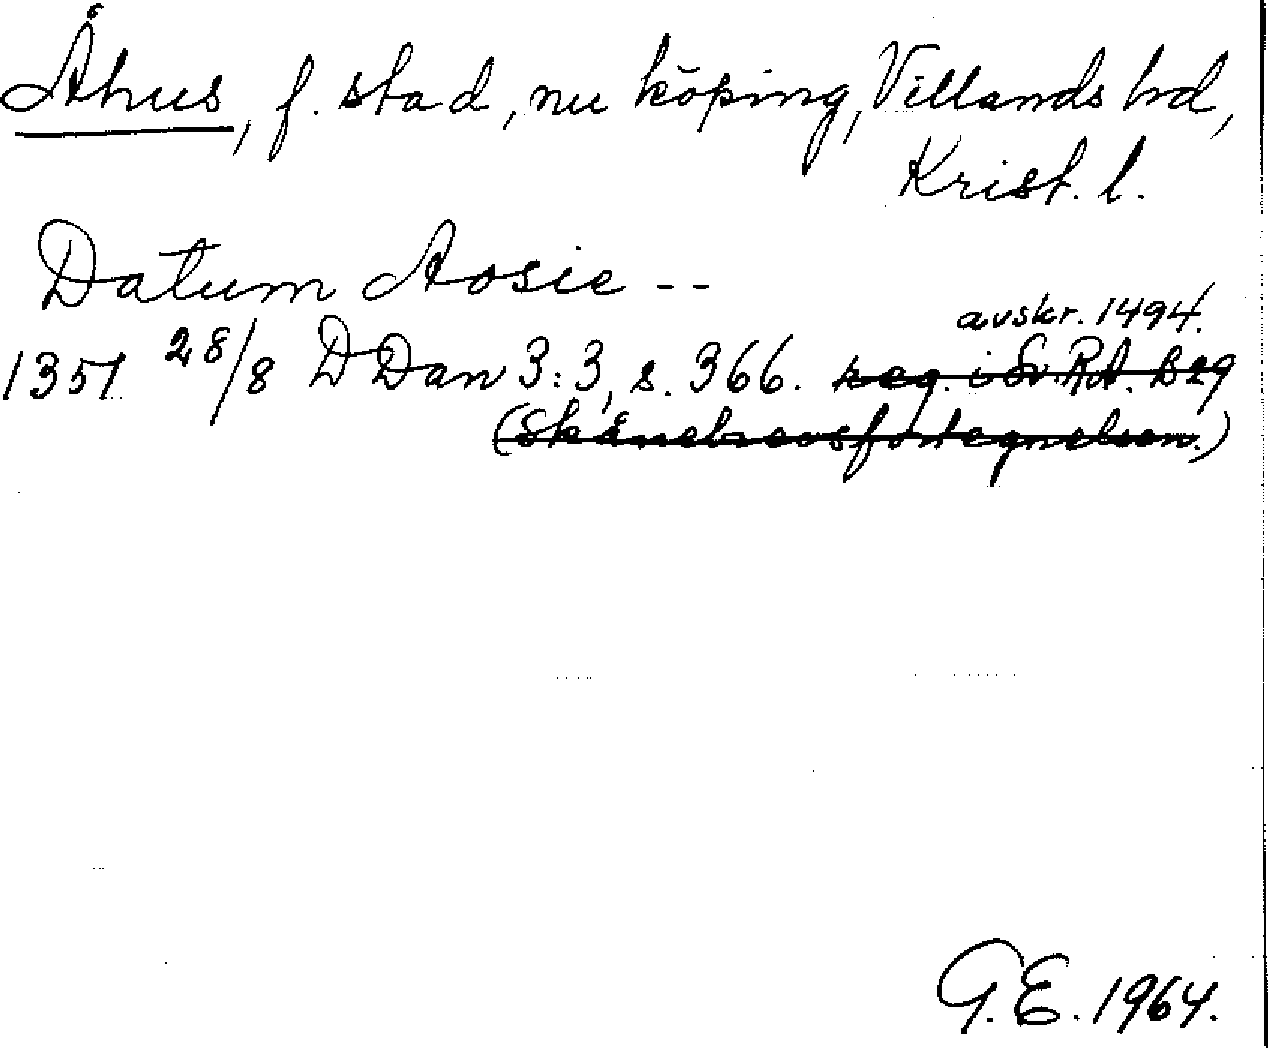 Åhus, f. stad, nu köping, Villands hd,
Krist. l.
Datum Aosie --
avskr. 1494.
1351 28/8 DDan 3:3, s. 366. reg. i Sv. RA. B 29
(Skånebrevsfortegnelsen.)
G.E. 1964.